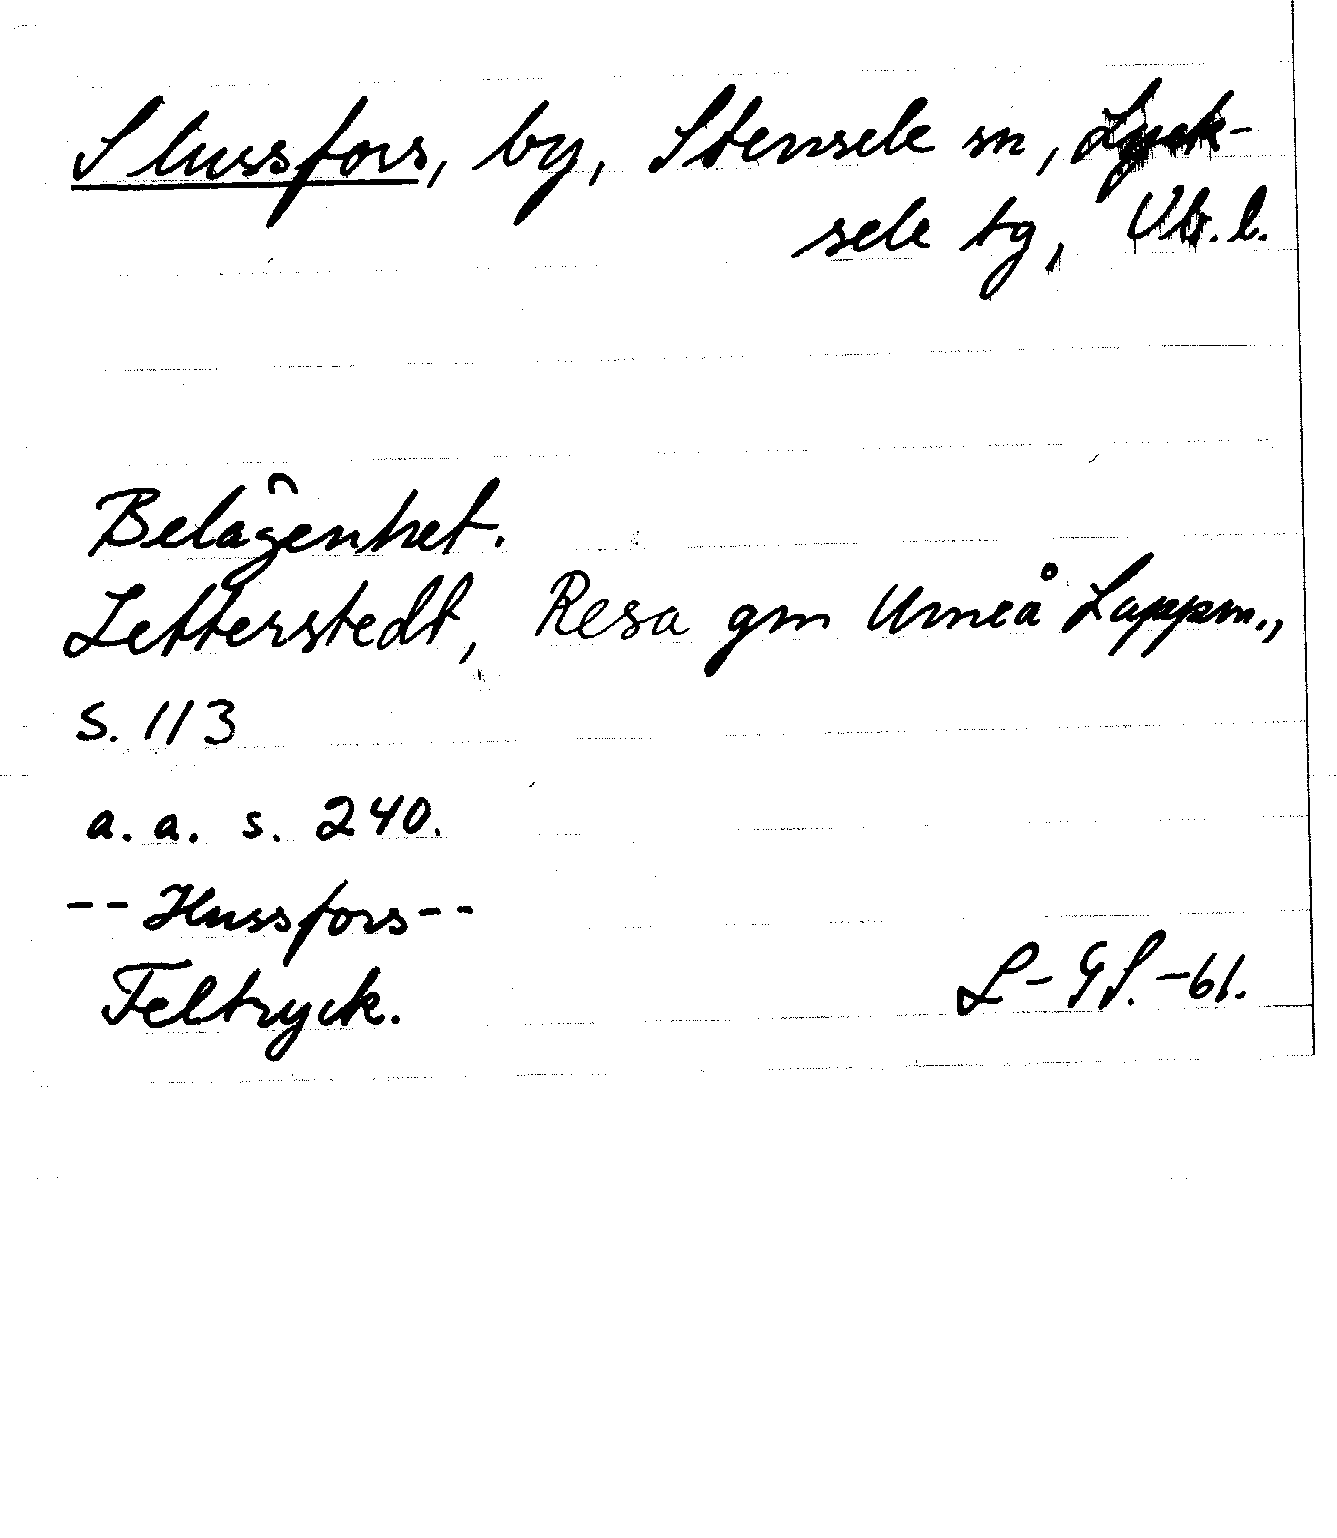 Slussfors, by, Stensele sn, Lyck-
sele tg, Vb. l.
Belägenhet.
Letterstedt, Resa gm Umeå Lappm.,
s. 113
a. a. s. 240.
-- Hussfors --
Feltryck.
L-GS.-61.